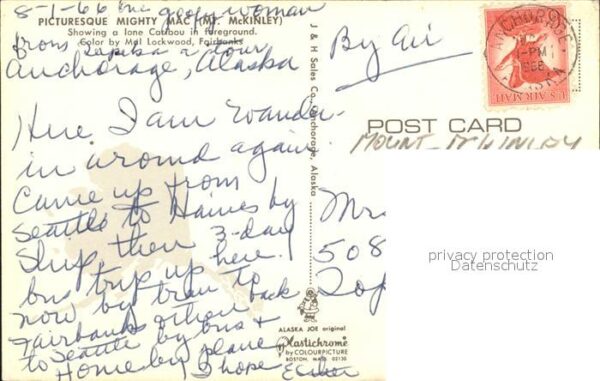 8-1-66
PICTURESQUE MIGHTY MAC (MT. McKINLEY)
Showing a lone Caribou in foreground.
Color by Mal Lockwood, Fairbanks
woman
from
Anchorage, Alaska
Here I am wander-
in around again.
Came up from
Seattle to Haines by
Ship, then 3-day
bus trip up here.
now by train to
Fairbanks & then back
to Seattle by bus &
Home by plane
I hope Esther
J & H Sales Co., Anchorage, Alaska
ALASKA JOE original
Plastichrome
by COLOURPICTURE
BOSTON, MASS. 02130
By Air
ANCHORAGE
PM
1966
ALASKA
U.S. AIR MAIL
POST CARD
MOUNT McKINLEY
Mr
508
Top
privacy protection
Datenschutz